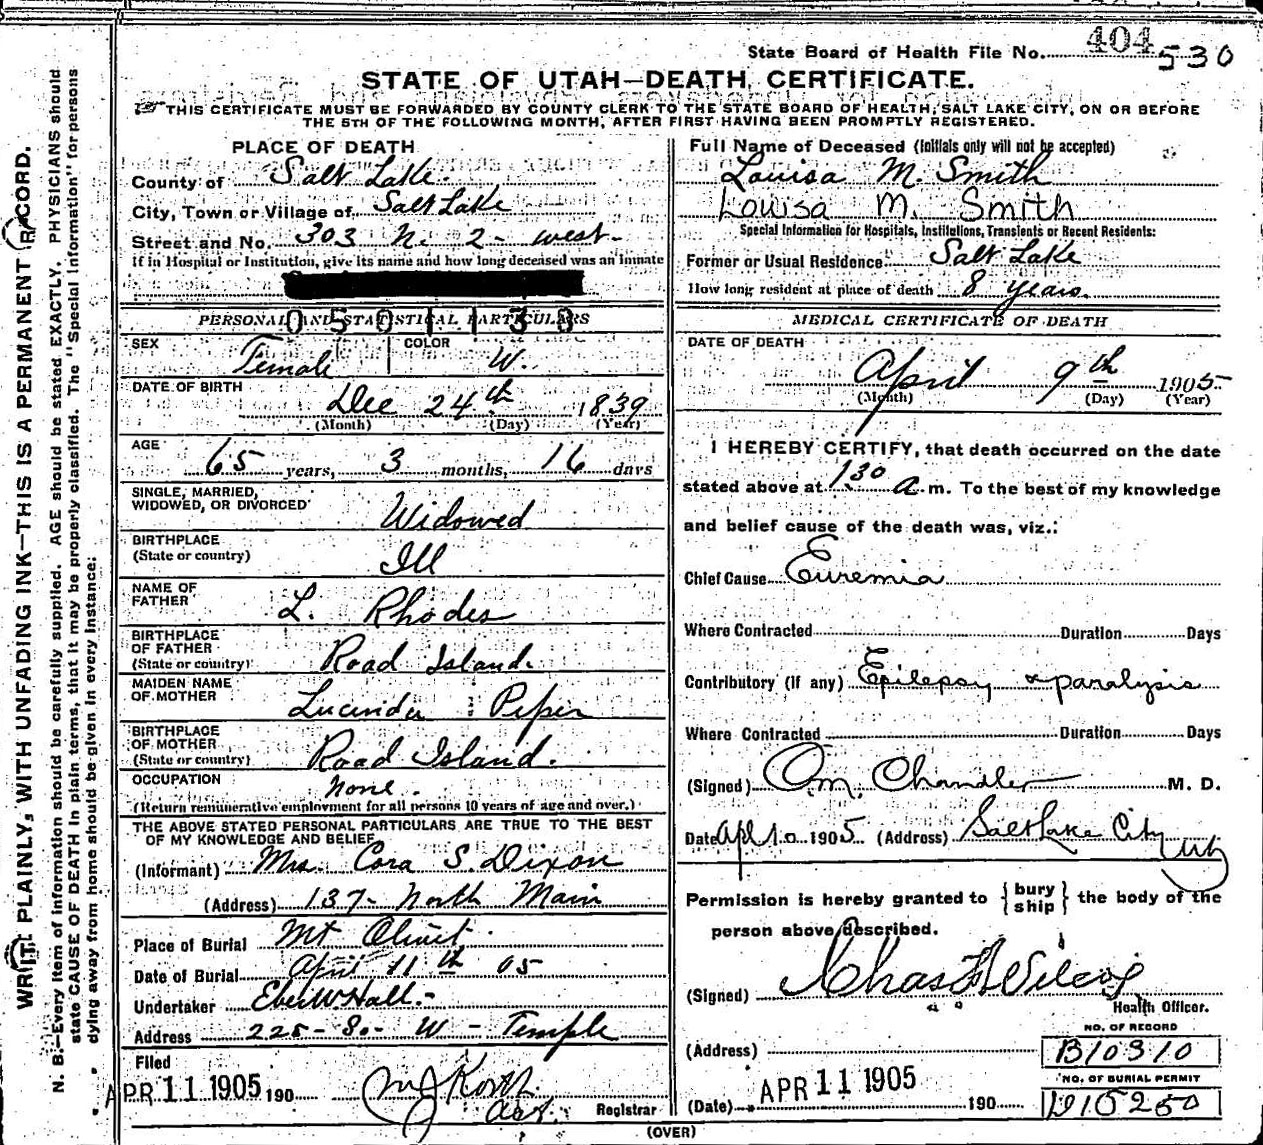 State Board of Health File No. 404 530
STATE OF UTAH—DEATH CERTIFICATE.
THIS CERTIFICATE MUST BE FORWARDED BY COUNTY CLERK TO THE STATE BOARD OF HEALTH, SALT LAKE CITY, ON OR BEFORE
THE 5TH OF THE FOLLOWING MONTH, AFTER FIRST HAVING BEEN PROMPTLY REGISTERED.
WRITE PLAINLY, WITH UNFADING INK—THIS IS A PERMANENT RECORD.
N. B.—Every item of information should be carefully supplied. AGE should be stated EXACTLY. PHYSICIANS should
state CAUSE OF DEATH in plain terms, that it may be properly classified. The "Special Information" for persons
dying away from home should be given in every instance.
PLACE OF DEATH
County of Salt Lake.
City, Town or Village of Salt Lake
Street and No. 303 N. 2 - west -
If in Hospital or Institution, give its name and how long deceased was an inmate
PERSONAL AND STATISTICAL PARTICULARS
0501130
SEX Female COLOR W.
DATE OF BIRTH
Dec 24th 1839
(Month) (Day) (Year)
AGE
65 years, 3 months, 16 days
SINGLE, MARRIED,
WIDOWED, OR DIVORCED Widowed
BIRTHPLACE
(State or country) Ill
NAME OF
FATHER L. Rhodes
BIRTHPLACE
OF FATHER
(State or country) Road Island.
MAIDEN NAME
OF MOTHER Lucinda Piper
BIRTHPLACE
OF MOTHER
(State or country) Road Island.
OCCUPATION None.
(Return remunerative employment for all persons 10 years of age and over.)
THE ABOVE STATED PERSONAL PARTICULARS ARE TRUE TO THE BEST
OF MY KNOWLEDGE AND BELIEF
(Informant) Mrs. Cora S. Dixon
(Address) 137- North Main
Place of Burial Mt Olivet.
Date of Burial April 11th 05
Undertaker Eber W Hall.-
Address 225- So- W - Temple
Filed
APR 11 1905 190
Asst. Registrar
Full Name of Deceased (Initials only will not be accepted)
Louisa M. Smith
Louisa M. Smith
Special Information for Hospitals, Institutions, Transients or Recent Residents:
Former or Usual Residence Salt Lake
How long resident at place of death 8 years.
MEDICAL CERTIFICATE OF DEATH
DATE OF DEATH
April 9th 1905
(Month) (Day) (Year)
I HEREBY CERTIFY, that death occurred on the date
stated above at 1.30 a. m. To the best of my knowledge
and belief cause of the death was, viz.:
Chief Cause Euremia
Where Contracted Duration Days
Contributory (if any) Epilepsy & paralysis
Where Contracted Duration Days
(Signed) O. M. Chandler M. D.
Date Apl 10 1905 (Address) Salt Lake City
Utj
Permission is hereby granted to {bury ship} the body of the
person above described.
(Signed) Chas F Wilcox
Health Officer.
NO. OF RECORD
(Address) B10310
NO. OF BURIAL PERMIT
(Date) APR 11 1905 190 D15250
(OVER)